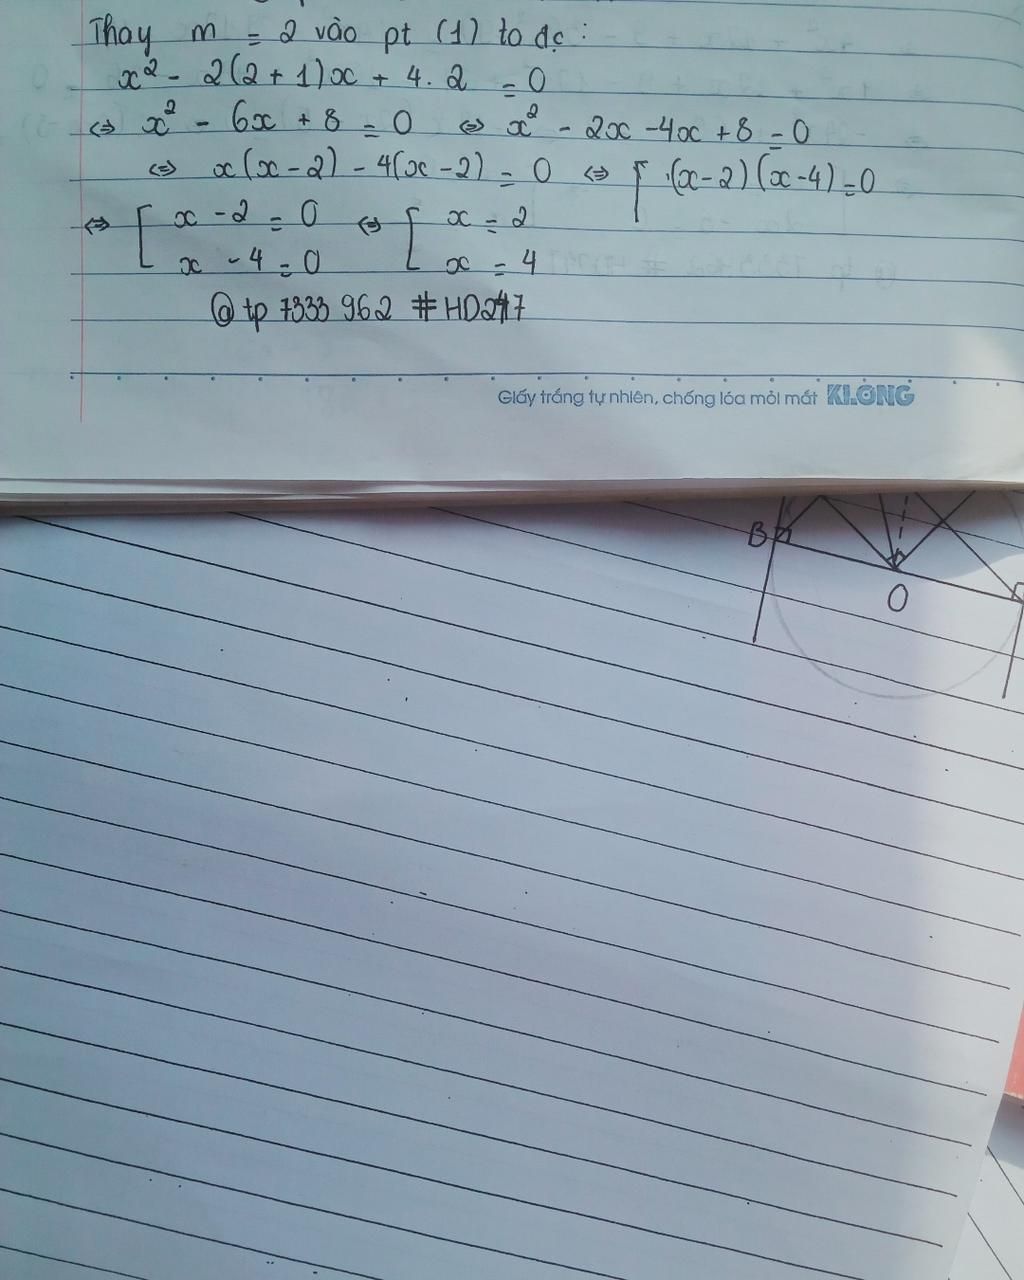 Thay m = 2 vào pt (1) ta đc :
x² - 2(2 + 1)x + 4. 2 = 0
⇔ x² - 6x + 8 = 0 ⇔ x² - 2x -4x + 8 = 0
⇔ x(x - 2) - 4(x - 2) = 0 ⇔ [ (x-2)(x-4) = 0
⇔ [ x - 2 = 0 ⇔ [ x = 2
x - 4 = 0 x = 4
@ tp 7333 962 # HD247
Giấy trắng tự nhiên, chống lóa mỏi mắt KLONG
B
O